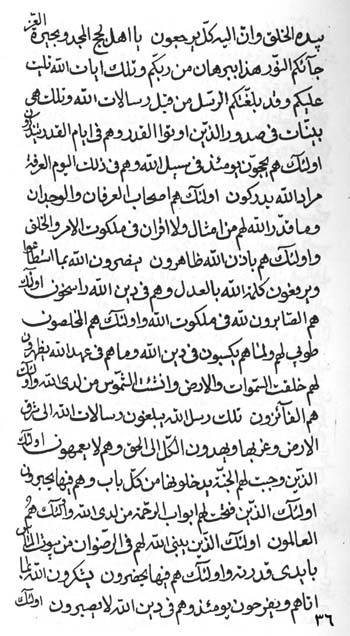 بيده الخلق وانّ اليه كلّ يرجعون يا اهل لجج المجد وبحيرة العزّ
جآئكم النّور هذا ببرهان من ربّكم وتلك ايات الله تليت
عليكم وقد بلّغتكم الرّسل من قبل رسالات الله وتلك هى
بيّنات فى صدور الّذين اوتوا القدر وهم فى ايام القدر يذكرون
اولئك هم يحجّون يومئذ فى سبيل الله وهم فى ذلك اليوم العرفة
مراد الله يدركون اولئك هم اصحاب العرفان والوجدان
وما قدّر الله لهم من امثال ولا اقران فى ملكوت الامر والخلق
واولئك هم باذن الله ظاهرون ينصرون الله بما استطاعوا
ويرفعون كلمة الله بالعدل وهم فى دين الله راسخون اولئك
هم القآئمون لله فى ملكوت الله واولئك هم المخلصون
طوبى لهم ولما هم يكسبون فى دين الله وما هم فى عهد الله ينظرون
لهم خلقت السّموات والارض وانشئت الشّموس من لدى الله واولئك
هم الفآئزون تلك رسل الله يبلغون رسالات الله الى شرق
الارض وغربها ويهدون الكلّ الى الحق وهم لا يعمهون اولئك
الّذين وجبت لهم الجنّة يدخلونها من كلّ باب وهم فيها يحبرون
اولئك الّذين فتحت لهم ابواب الرّحمة من لدى الله واولئك هم
العالمون اولئك الّذين بنى الله لهم فى الرّضوان من بيوت
بايدى قدرته واولئك هم فيها يحضرون يشكرون الله بما
اتاهم ويفرحون يومئذ وهم فى دين الله لا يصبرون اولئك
٣٦